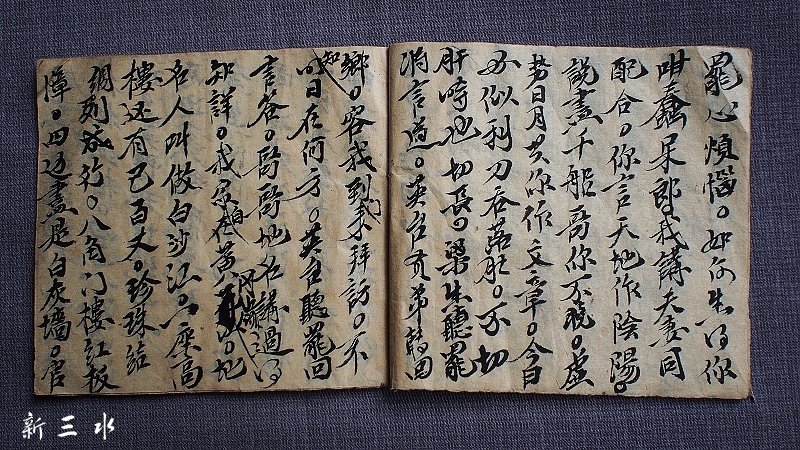 罷心煩惱。如何生得你
咁蠢呆郎。我講夫妻同
配合。你言天地作陰陽。
說盡千般哥你不脫。虛
勞日月共你作文章。今日
必似利刀吞落肚。不切
肝時也切長。梁生聽罷
消言道。英台賢弟轉回
鄉。容我到來拜訪。不知
日在何方。英台聽罷回
言答。哥哥地名講過得
知詳。我家自在黃 地
名人叫做白沙江。一座高
樓还有已百丈。珍珠結
網列成行。八角門樓紅板
障。四邊盡是白灰墻。
新三水